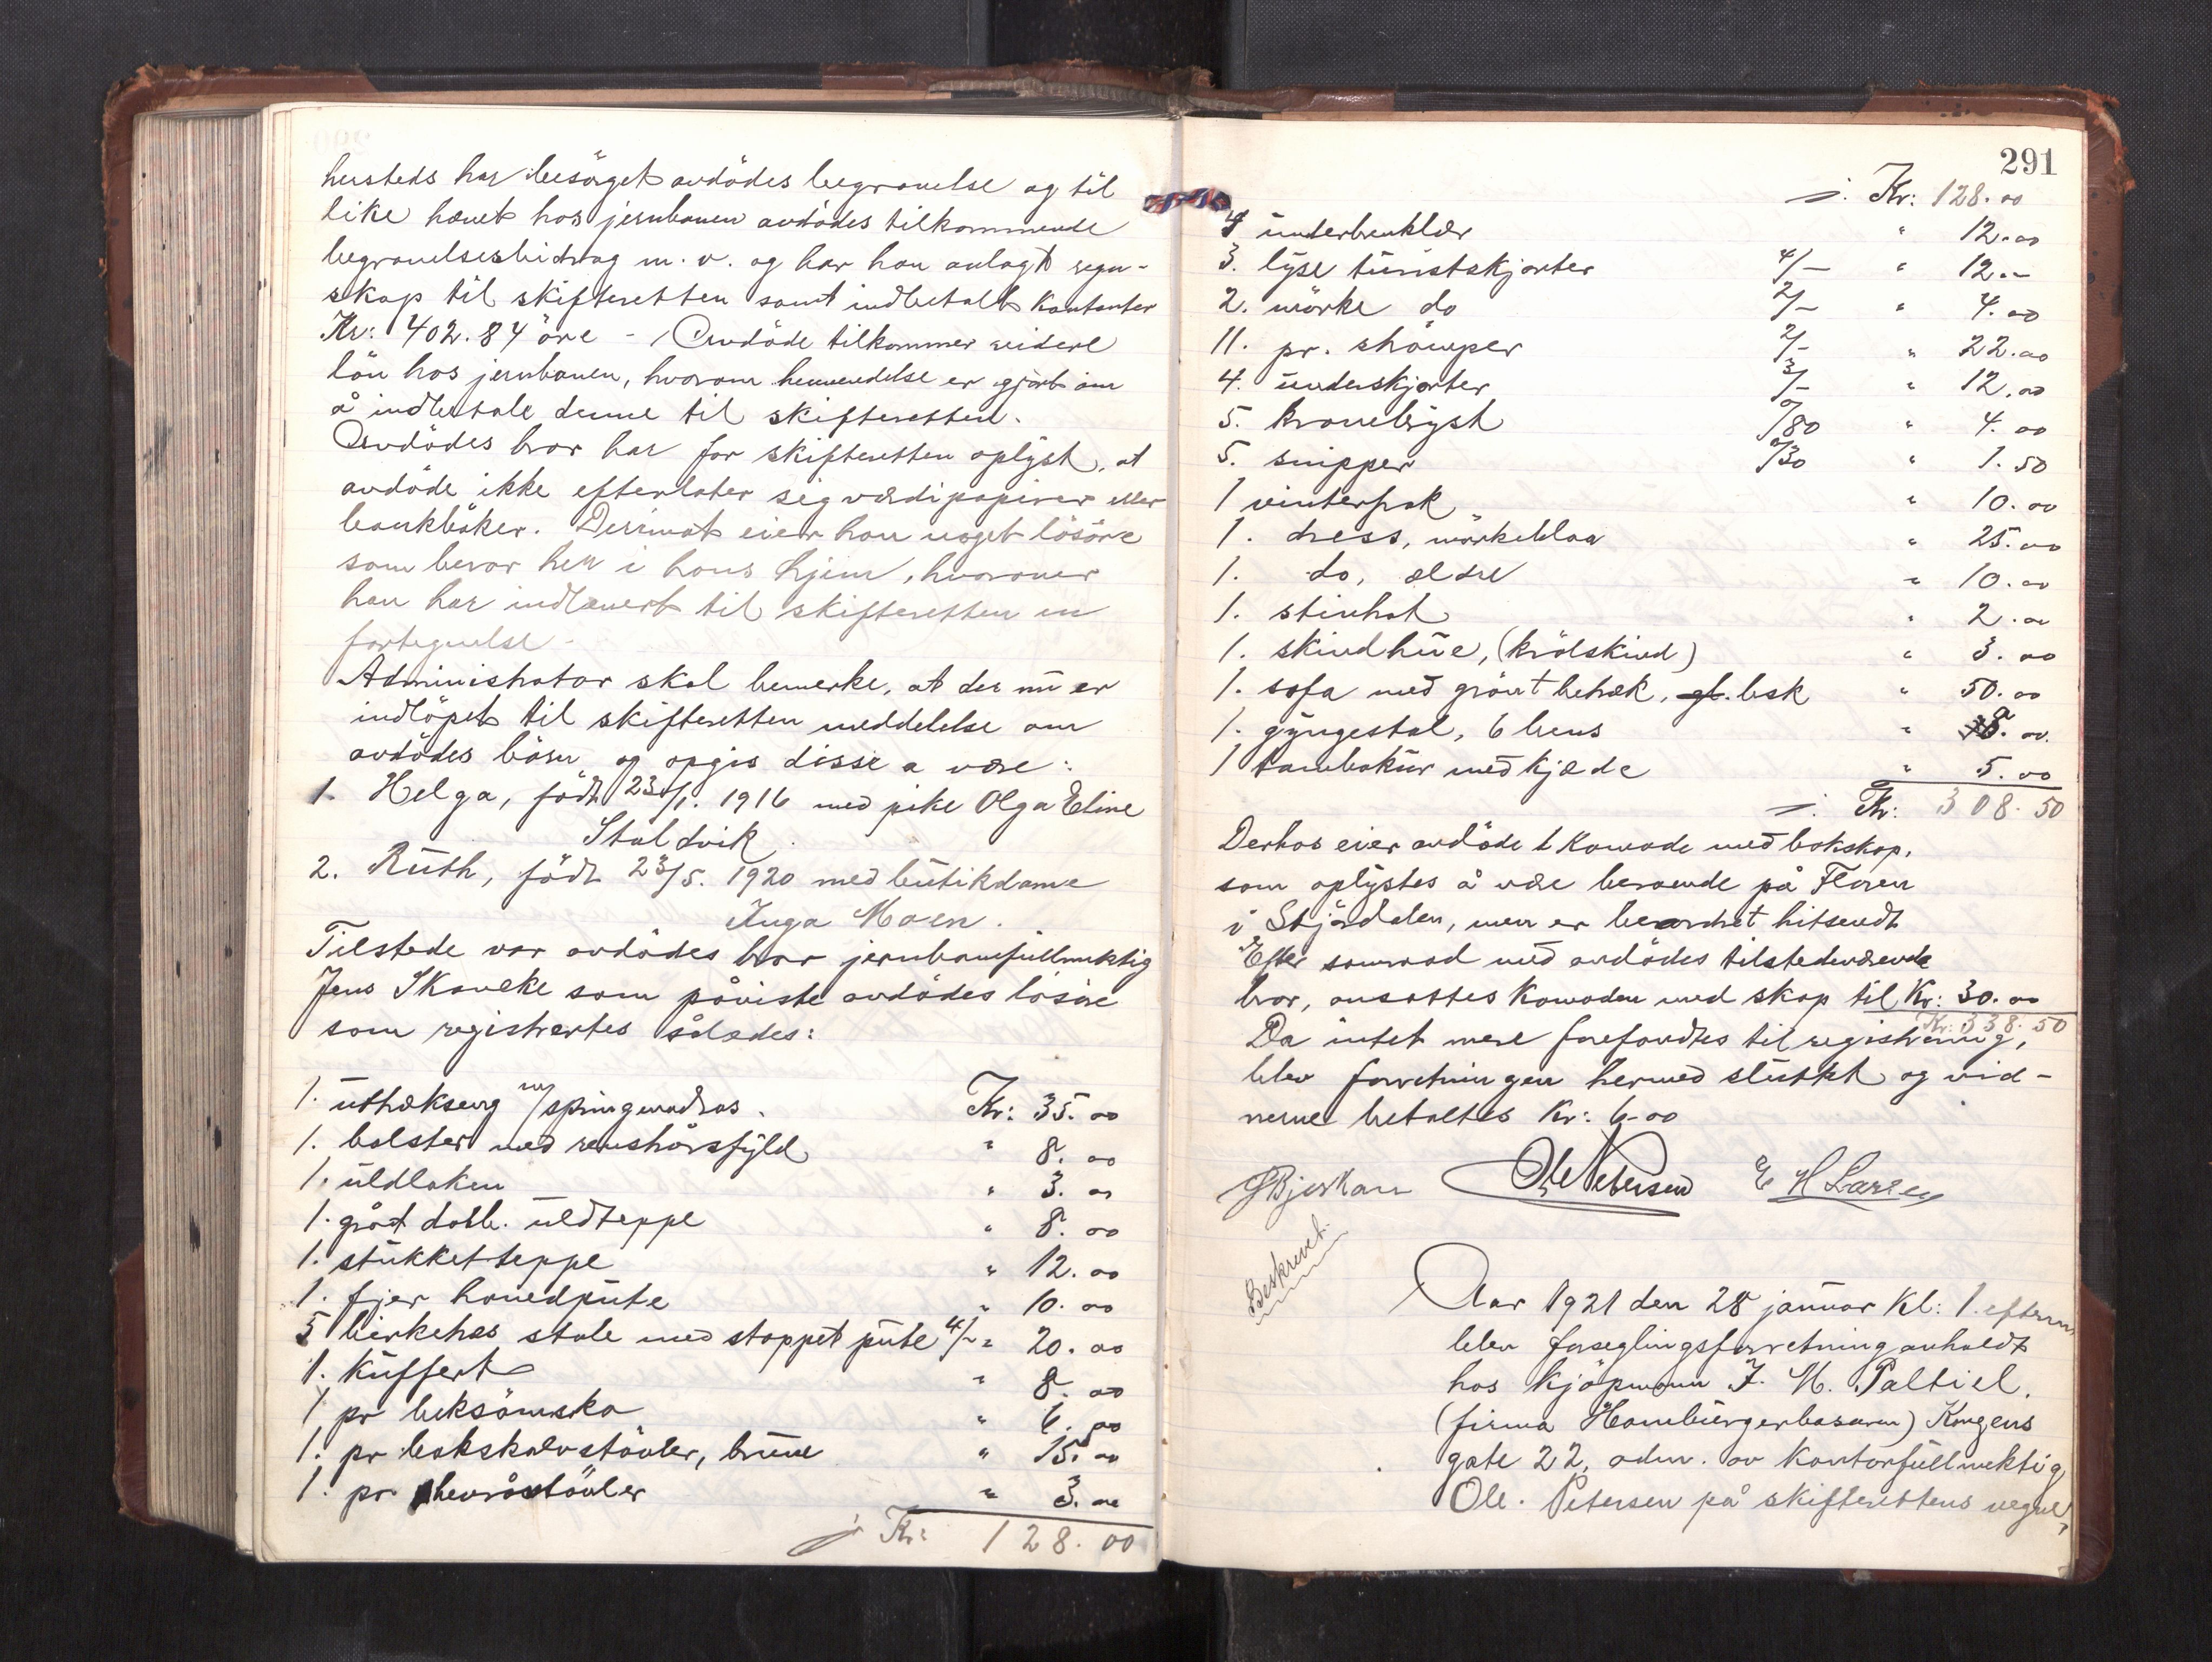 hersteds har besörget avdödes begravelse og til
like hævet hos jernbanen avdödes tilkommende
begravelsesbidrag m. v. og har han anlagt regn-
skap til skifteretten samt indbetalt kontanter
Kr: 402.84 öre - Avdöde tilkommer videre
lön hos jernbanen, hvorom henvendelse er gjort om
å indbetale denne til skifteretten.
Avdödes bror har for skifteretten oplyst, at
avdöde ikke efterlater sig værdipapirer eller
bankböker. Derimot eier han noget lösöre
som beror her i hans hjem, hvorover
han har indlevert til skifteretten en
fortegnelse -
Administrator skal bemerke, at der nu er
indlöpet til skifteretten meddelelse om
avdödes börn og opgis disse a være:
1. Helga, födt 23/1. 1916 med pike Olga Eline
Staldvik.
2. Ruth, födt 23/5. 1920 med butikdame
Inga Moen.
Tilstede var avdödes bror jernbanefullmektig
Jens Skaneke som påviste avdödes lösöre
som registrertes således:
1. uttrækseng m/springmadras. Kr: 35.00
1. bolster med renshårsfyld " 8.00
1. uldlaken " 3.00
1. gråt dobb. uldteppe " 8.00
1. stukket teppe " 12.00
1. fjer hovedpute " 10.00
5 birketræs stole med stoppet pute 4/- " 20.00
1. kuffert " 8.00
1 pr beksömsko " 6.00
1. pr bokskalvstövler, brune " 15.00
1. pr chevråstövler " 3.00
Kr: 128.00
291
Kr: 128.00
4 underbenklær " 12.00
3. lyse turistskjorter 4/- " 12.00
2. mörke do 2/- " 4.00
11. pr. strömper 2/- " 22.00
4. underskjorter 3/- " 12.00
5. kravebryst 0/80 " 4.00
5. snipper 0/30 " 1.50
1 vinterfrak " 10.00
1. dress, mörkeblaa " 25.00
1. do, ældre " 10.00
1. stivhat " 2.00
1. skindhue, (krölskind) " 3.00
1. sofa med grönt betræk, gl. bek " 50.00
1. gyngestol, 6 bens " 8.00
1 tambakur med kjæde " 5.00
Kr: 308.50
Derhos eier avdöde 1 komode med bokskap,
som oplystes å være beroende på Floren
i Stjördalen, men er beordret hitsendt
Efter samraad med avdödes tilstedeværende
bror, ansattes komoden med skap til Kr: 30.00
Kr: 338.50
Da intet mere forefandtes til registrering,
blev forretningen hermed sluttet og vid-
nerne betaltes Kr: 6.00
J Bjerkan Ole Petersen E H Larsen
Beskrevet.
Aar 1921 den 28 januar kl: 1. efterm
blev forseglingsforretning avholdt
hos kjöpmann J. M. Paltiel.
(firma Hamburgerbasaren) Kongens
gate 22, adm. av kontorfullmektig
Ole. Petersen på skifterettens vegne,